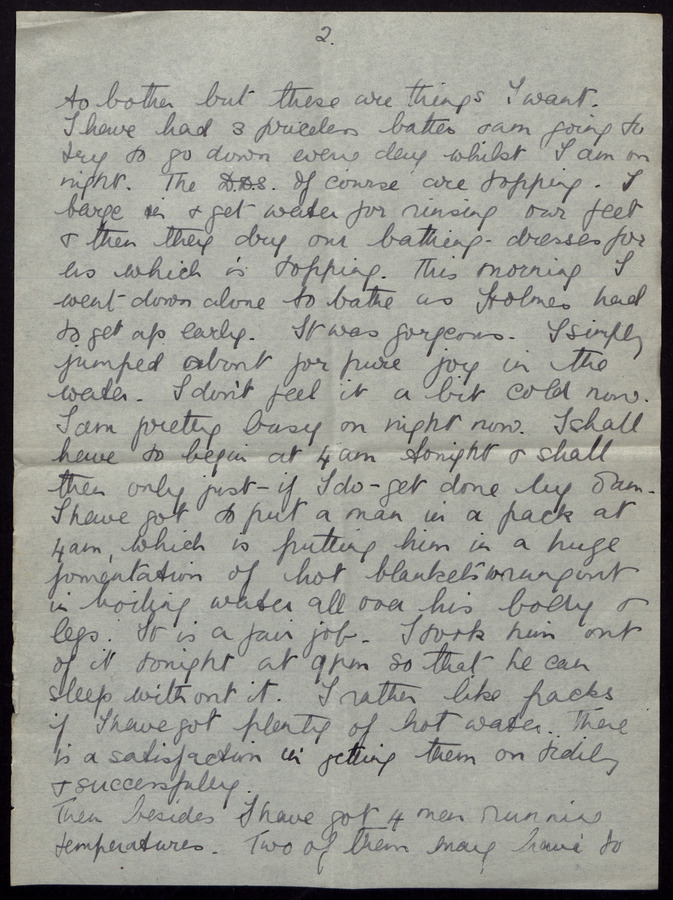 2.
to bother but these are things I want.
I have had 3 priceless bathes & am going to
try to go down every day whilst I am on
night. The D.D.S. Of course are topping. I
barge in & get water for rinsing our feet
& then they dry our bathing-dresses for
us which is topping. This morning I
went down alone to bathe as Holmes had
to get up early. It was gorgeous. I simply
jumped about for pure joy in the
water. I don't feel it a bit cold now.
I am pretty busy on night now. I shall
have to begin at 4 am tonight & shall
then only just - if I do - get done by 8am.
I have got to put a man in a pack at
4am, which is putting him in a huge
fomentation of hot blankets wrung out
in boiling water all over his body &
legs. It is a fair job. I took him out
of it tonight at 9pm so that he can
sleep without it. I rather like packs
if I have got plenty of hot water. There
is a satisfaction in getting them on tidily
& successfully.
Then besides I have got 4 men running
temperatures. Two of them may have to